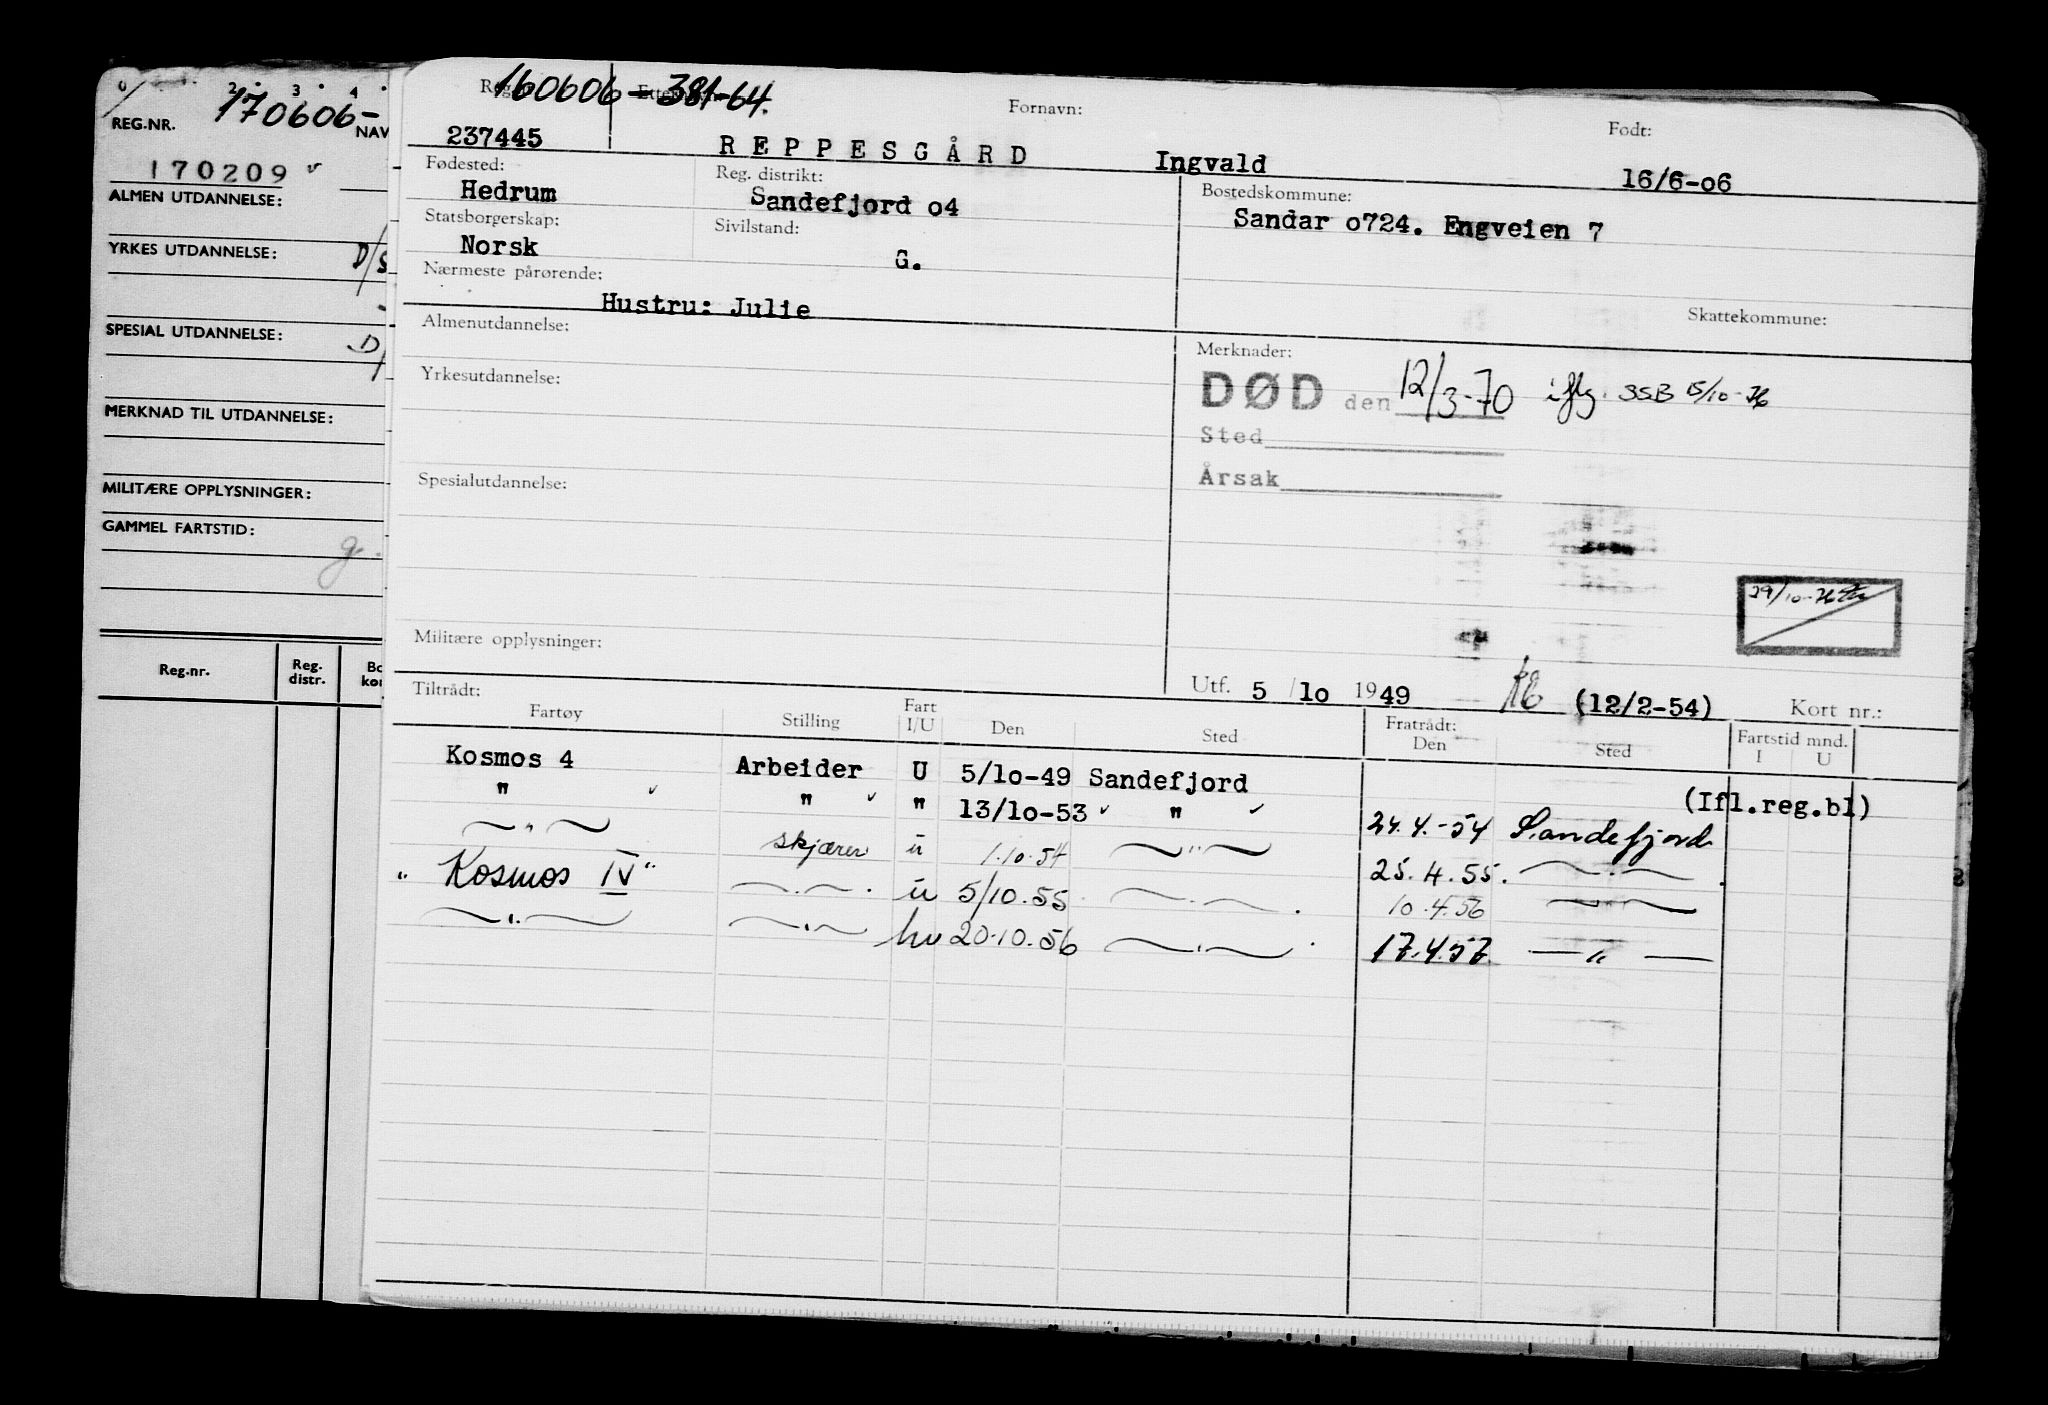 0 2 3 4
170606-
REG.NR. NAV
170209 v
ALMEN UTDANNELSE:
YRKES UTDANNELSE: D/S
SPESIAL UTDANNELSE: D/
MERKNAD TIL UTDANNELSE:
MILITÆRE OPPLYSNINGER:
GAMMEL FARTSTID:
g.
Reg.nr. Reg. distr. Bo kon
160606-381-64.
Fornavn: Født:
237445 REPPESGÅRD Ingvald 16/6-06
Fødested: Reg. distrikt: Bostedskommune:
Hedrum Sandefjord o4 Sandar o724. Engveien 7
Statsborgerskap: Sivilstand:
Norsk G.
Nærmeste pårørende: Skattekommune:
Hustru: Julie
Almenutdannelse: Merknader:
DØD den 12/3-70 iflg. SSB 15/10-76
Yrkesutdannelse:
Sted
Spesialutdannelse: Årsak
29/10-76
Militære opplysninger:
Utf. 5/10 1949 (12/2-54) Kort nr.:
Tiltrådt: Fratrådt: Fartstid mnd.
Fartøy Stilling Fart I/U Den Sted Den Sted I U
Kosmos 4 Arbeider U 5/lo-49 Sandefjord
" v " v " 13/lo-53 v " v 24.4.-54 Sandefjord (Ifl.reg.bl)
—"— skjærer u 1.10.54 —"— 25.4.55. —"—
"Kosmos IV" —"— u 5/10.55 —"— 10.4.56 —"—
—"— —"— hv 20.10.56 —"— 17.4.57. —"—